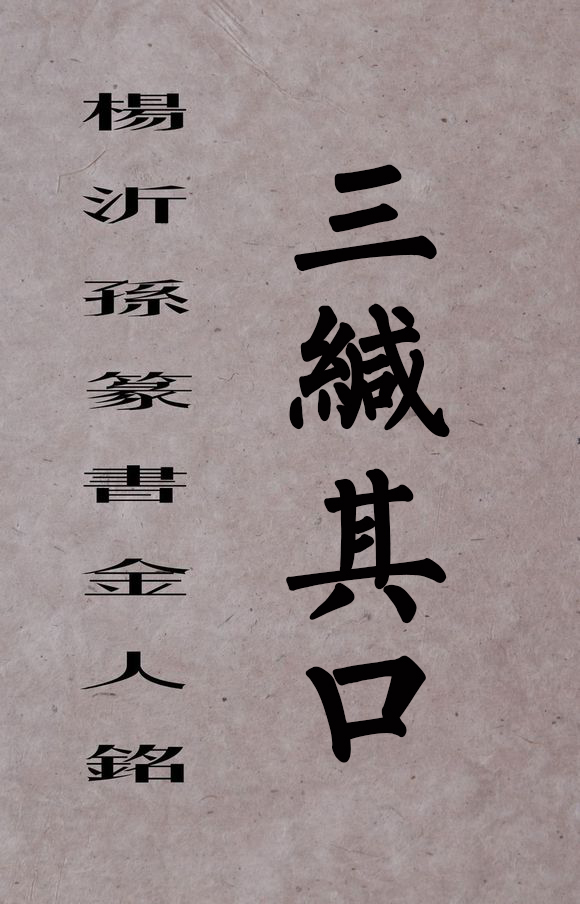 三緘其口
楊沂孫篆書金人銘